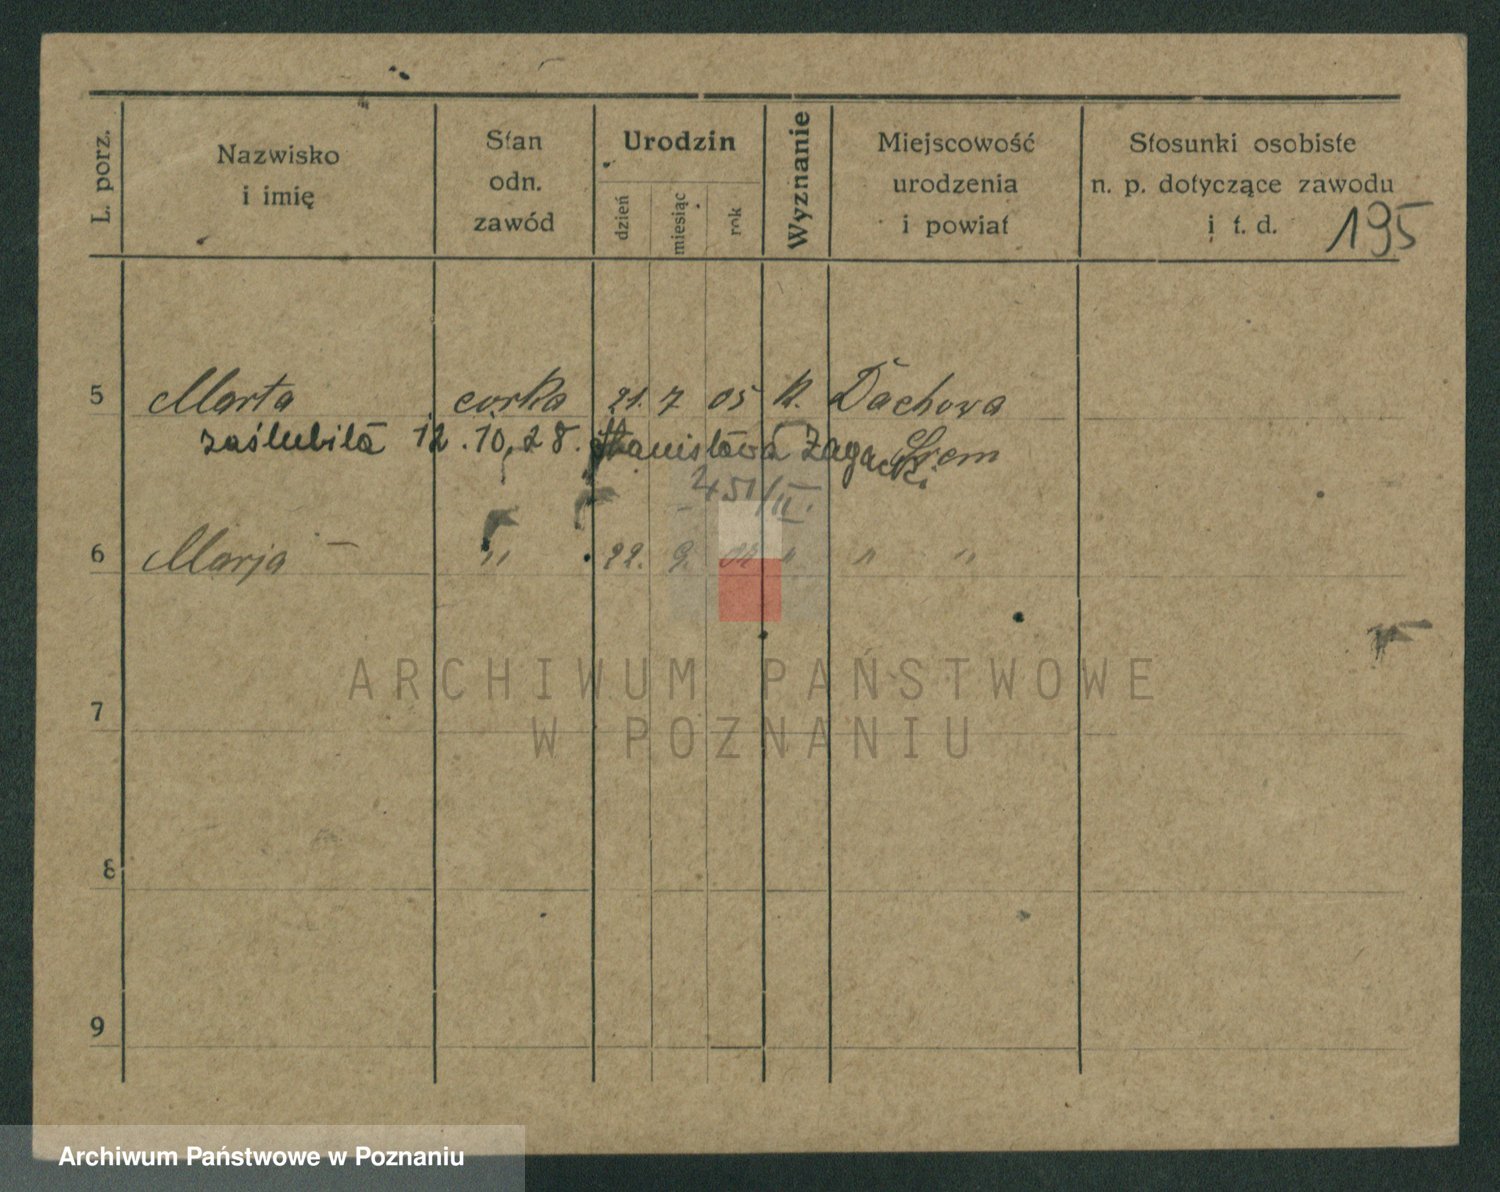 L. porz.
Nazwisko
i imię
Stan
odn.
zawód
Urodzin
dzień
miesiąc
rok
Wyznanie
Miejscowość
urodzenia
i powiat
Stosunki osobiste
n. p. dotyczące zawodu
i t. d.
195
5 Marta córka 21. 7 05 K. Dachova
Śrem
zaślubiła 12.10.28. Stanisława Zagacki
451/II.
6 Marja — " 22. 9. " " "
7
8
9
ARCHIWUM PAŃSTWOWE
W POZNANIU
Archiwum Państwowe w Poznaniu